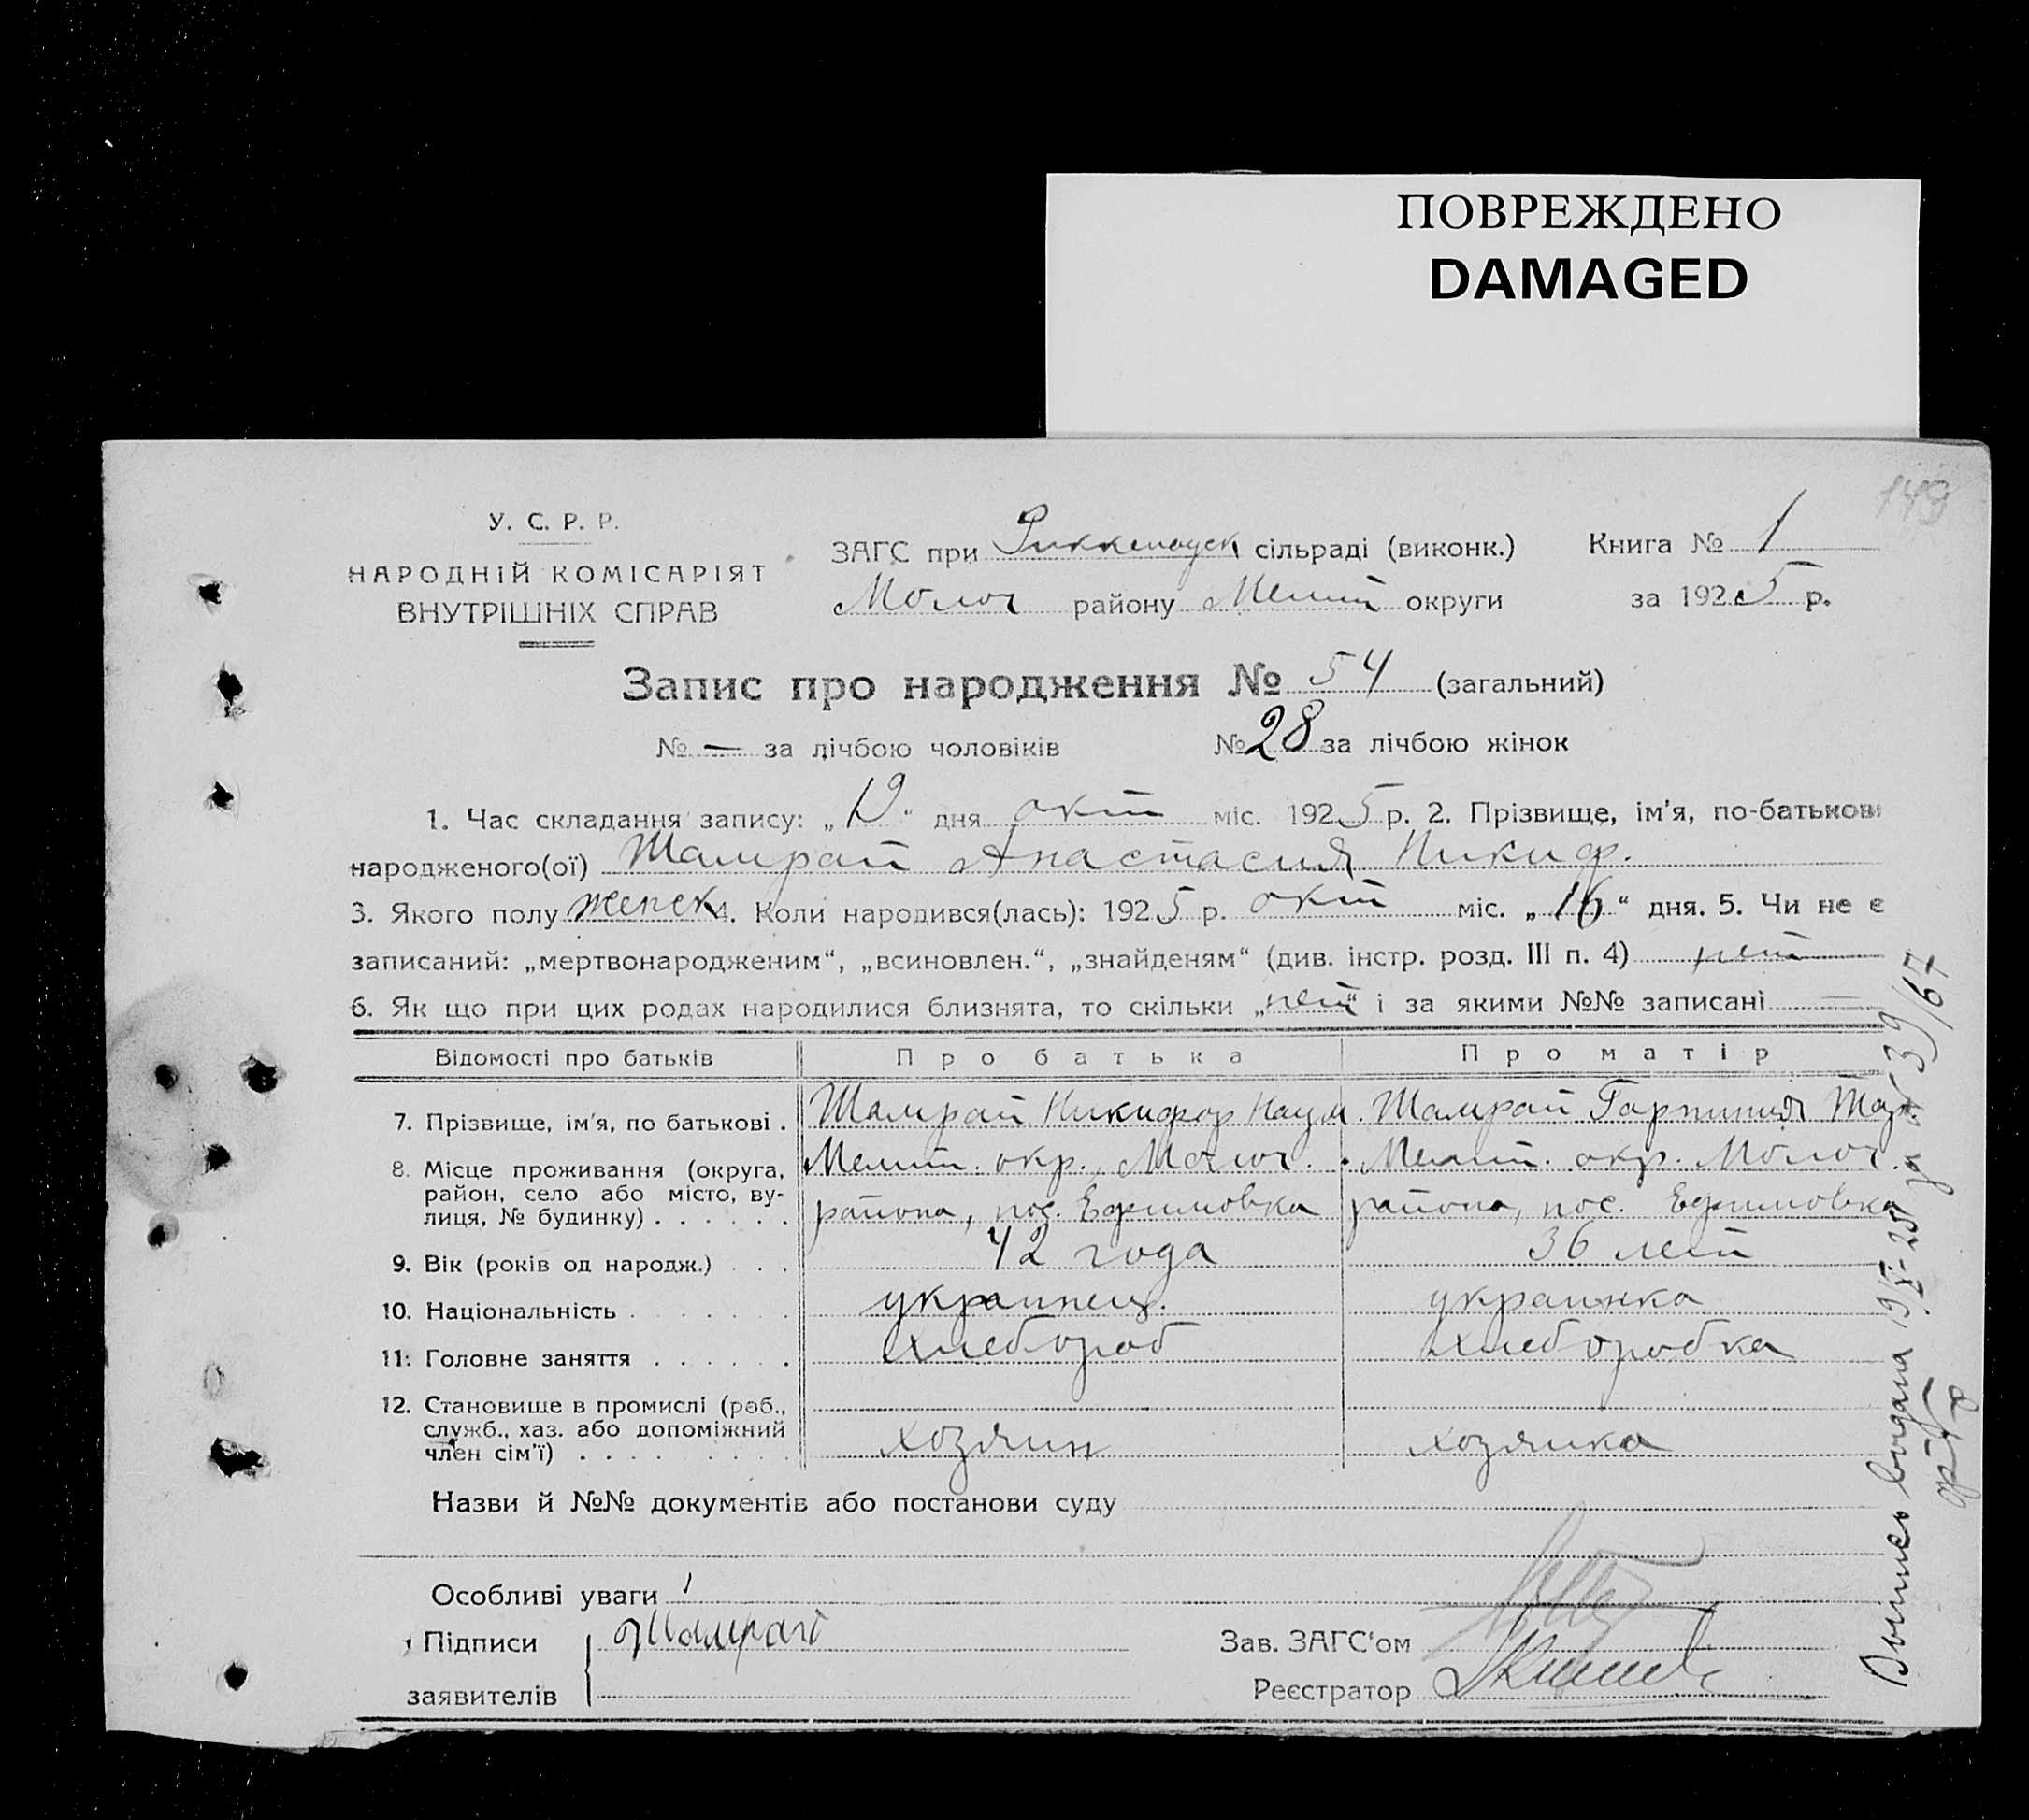 ПОВРЕЖДЕНО
DAMAGED
149
У. С. Р. Р.
НАРОДНІЙ КОМІСАРІЯТ
ВНУТРІШНІХ СПРАВ
ЗАГС при сільраді (виконк.)
Молоч району Мелит округи
Книга № 1
за 1925 р.
Запис про народження № 54 (загальний)
№ — за лічбою чоловіків № 28 за лічбою жінок
1. Час складання запису: „19“ дня окт міс. 1925 р. 2. Прізвище, ім'я, по-батькові
народженого(ої) Шамрай Анастасия Никиф.
3. Якого полу женск 4. Коли народився(лась): 1925 р. окт міс. „16“ дня. 5. Чи не є
записаний: „мертвонародженим“, „всиновлен.“, „знайденям“ (див. інстр. розд. III п. 4) нет
6. Як що при цих родах народилися близнята, то скільки „нет“ і за якими №№ записані —
Відомості про батьків Про батька Про матір
7. Прізвище, ім'я, по батькові . Шамрай Никифор Наум. Шамрай Гарпиния
8. Місце проживання (округа, район, село або місто, ву-лиця, № будинку) . . . . . . Мелит. окр., Молоч. района, пос. Ефимовка Мелит. окр. Молоч. района, пос. Ефимовка
9. Вік (років од народж.) . . . 42 года 36 лет
10. Національність . . . . . . . украинец. украинка
11. Головне заняття . . . . . . хлебороб хлеборобка
12. Становище в промислі (роб., служб., хаз. або допоміжний член сім'ї) . . . . . . . . . хозяин хозяйка
Назви й №№ документів або постанови суду
Особливі уваги
Підписи
заявителів
Шамрай
Зав. ЗАГС'ом
Реєстратор
Выпись выдана 19 X-25 за № 39/67